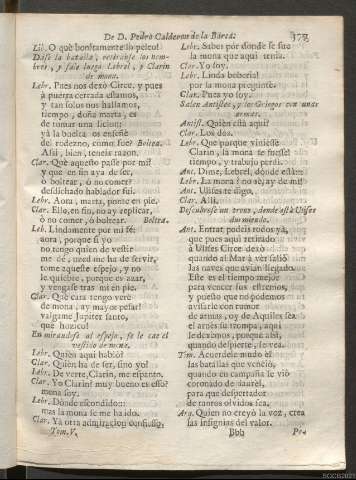 De D. Pedro Calderon de la Barca.
Lib. O què bonitamente lo peleo!
Dase la batalla, retiranse los hombres, y sale luego Lebrel, y Clarin
de mona.
Lebr. Pues nos dexò Circe, y pues
à puerta cerrada estamos,
y tan solos nos hallamos,
tiempo, doña marta, es
de tomar una licion:
yà la buelta os enseñè
del rodezno, como fue? Boltea.
Assi, bien, teneis razon.
Clar. Què aquesto passe por mi!
y que en fin aya de ser,
ò boltear, ò no comer?
desdichado hablador fui.
Lebr. Aora, marta, ponte en pie.
Clar. Ello, en fin, no ay replicar,
ò no comer, ò boltear. Boltea.
Leb. Lindamente por mi fè:
aora, porque si yo
no tengo quien de vestirme dè, usted me ha de servir,
tome aqueste espejo, y no
le quiebre, porque es azar,
y vengase tras mi en pie.
Clar. Què cara tengo verè
de mona, ay mayor pesar!
valgame Jupiter santo,
què hozico!
En mirandose al espejo, se le cae el
vestido de mona.
Lebr. Quièn aqui hablò?
Clar. Quièn ha de ser, sino yo?
Lebr. De verte, Clarin, me espanto.
Clar. Yo Clarin? muy bueno es esso?
mona soy.
Lebr. Donde escondido:
mas la mona se me ha ido.
Clar. Ya otra admiracion confiesso.
Tom. V.
Lebr. Sabes por donde se fue
la mona que aqui tenia.
Clar. Yo soy.
Lebr. Linda boberia!
por la mona pregunte.
Clar. Pues yo soy.
Salen Antistes, y los Griegos con unas
armas.
Antist. Quièn està aqui?
Clar. Los dos.
Lebr. Que porque viniesse
Clarin, la mona se fuesse!
tiempo, y trabajo perdì.
Ant. Dime, Lebrel, dònde estàn:
Lebr. La mona? no sè, ay de mi!
Ant. Ulises te digo.
Clar. Allì.
Descubrese un trono, donde està Ulises
durmiendo.
Ant. Entrar podeis todos yà,
que pues aqui retirado
à Ulises Circe dexò
quando al Mar à vèr saliò
las naves que avian llegado:
Este es el tiempo mejor
para vencer sus estremos,
y puesto que no podemos
avisarle con rumor
de armas, oy de Aquiles sea
el arnès su trompa, aqui
le dexamos, porque assi,
quando despierte, le vea.
Tim. Acuerdele mudo èl
las batallas que venciò,
quando en campaña se viò
coronado de laurèl,
para que despertador
de tantos olvidos sea.
Arq. Quien no creyò la voz, crea
las insignias del valor.
Bbb